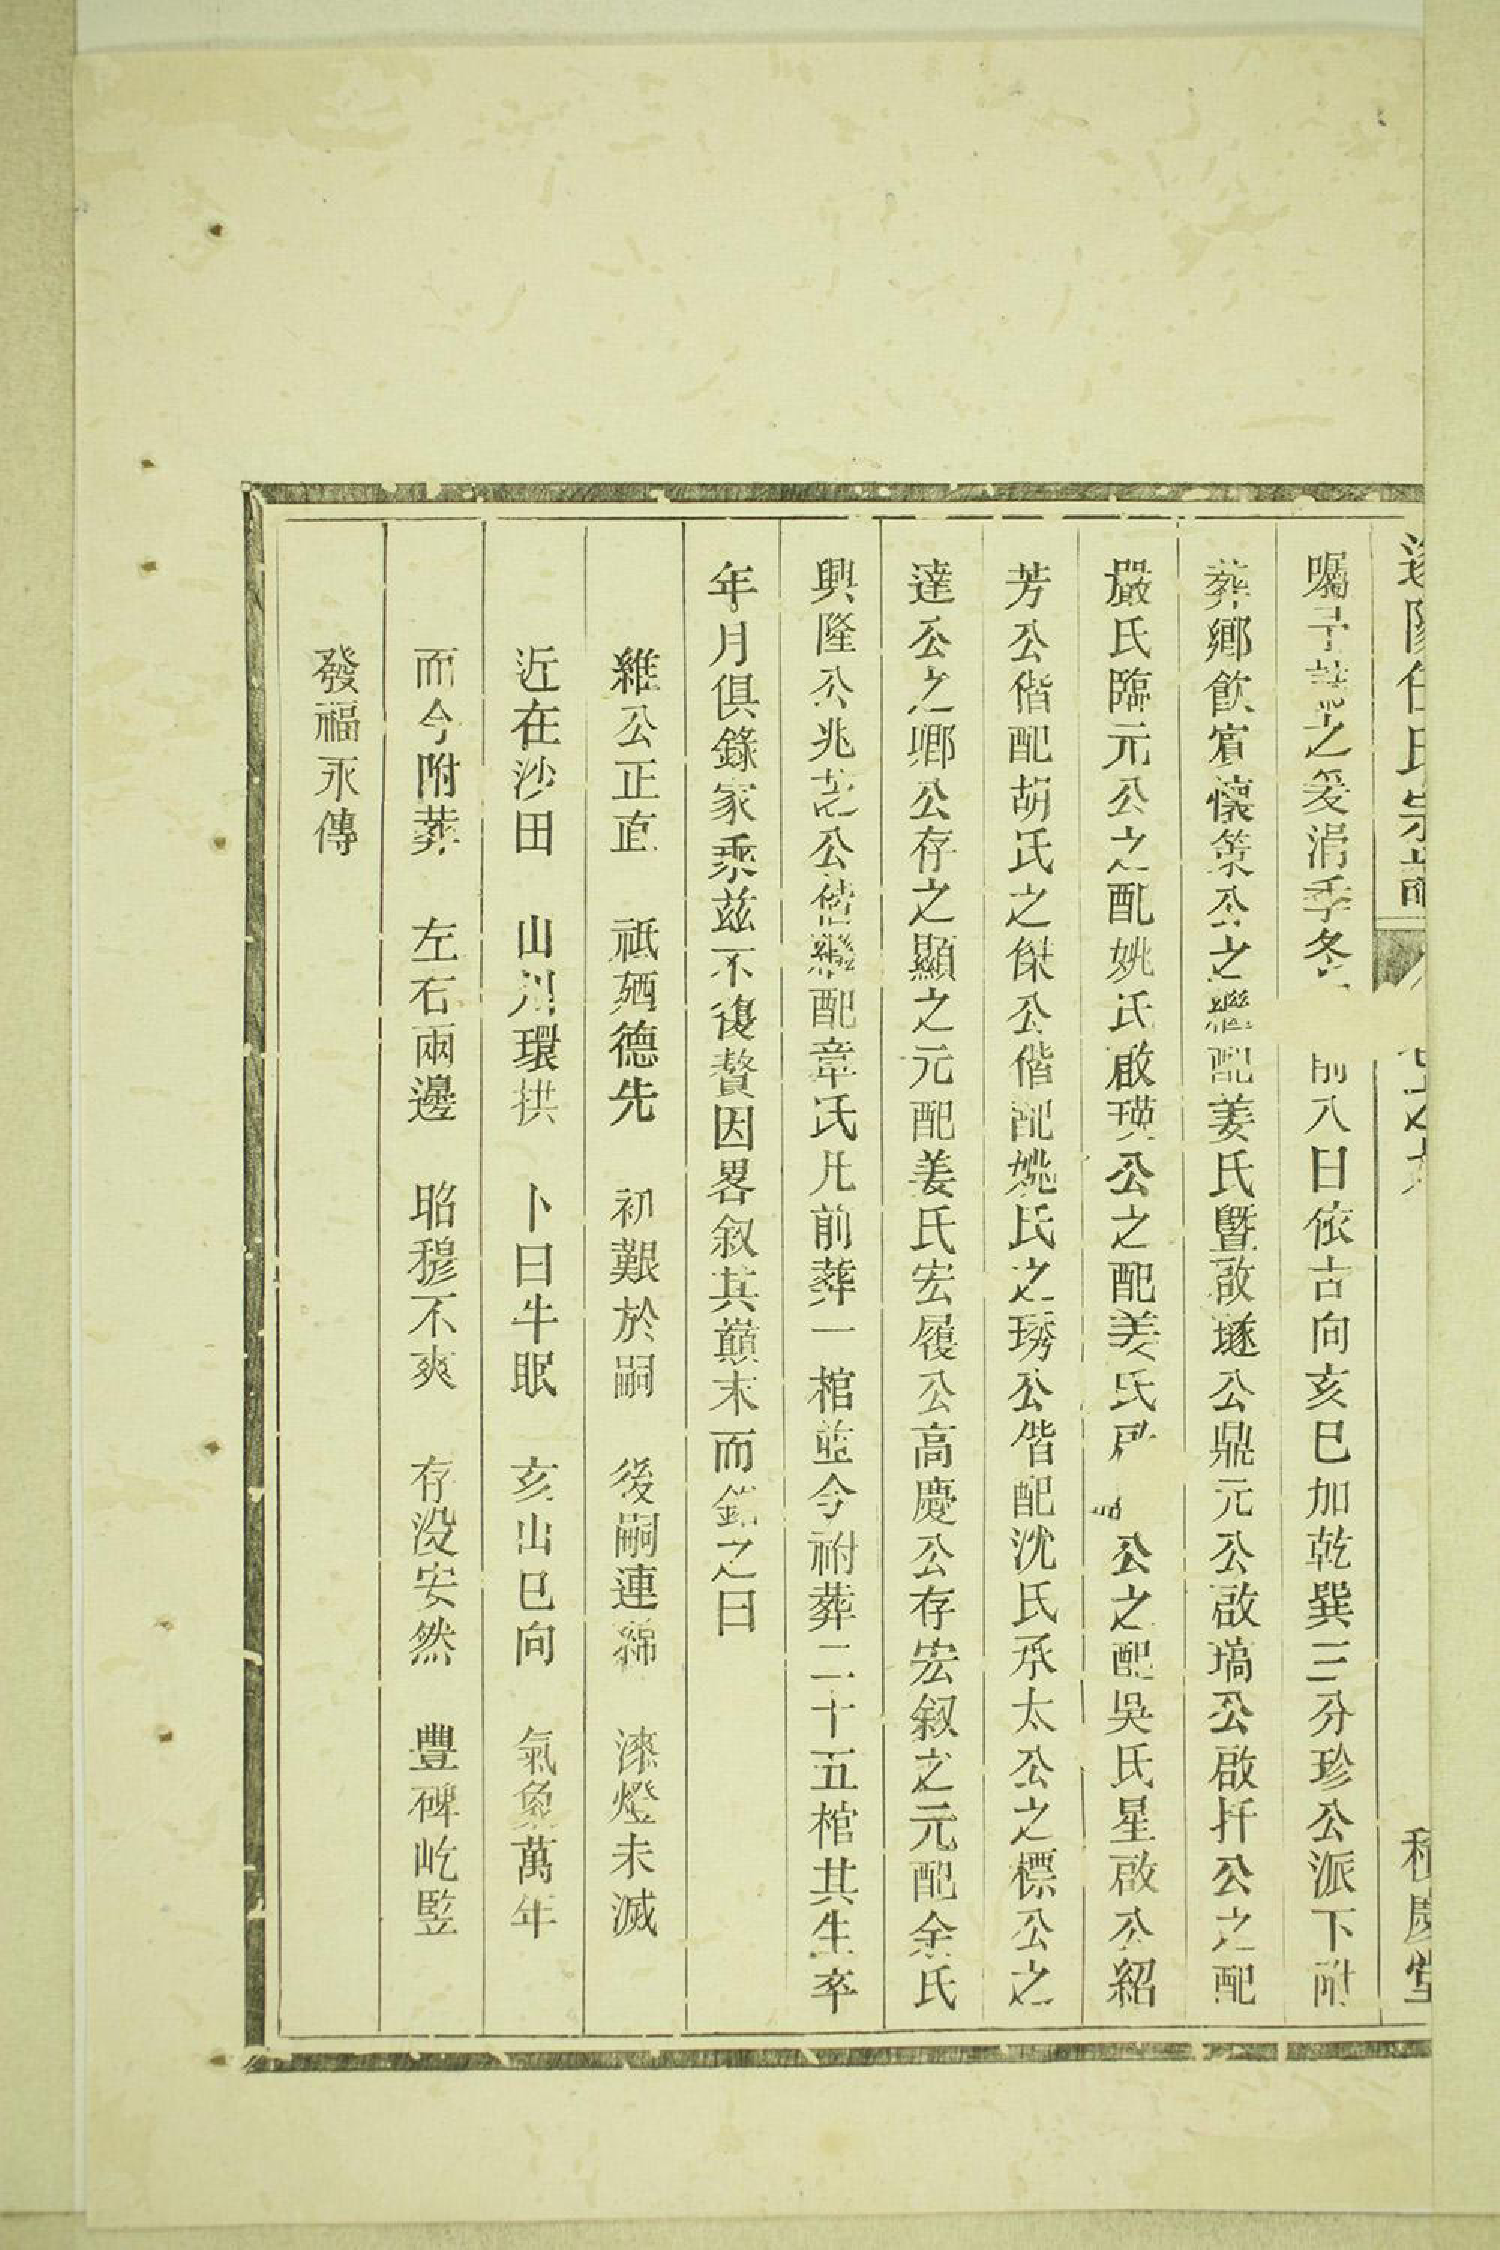 氏宗譜 之 慶堂
囑予 之爰涓季冬 前八日依古向亥巳加乾巽三分珍公派下附
葬鄉飲賓懷策公之繼配姜氏暨啟㙐公鼎元公啟塙公啟扦公之配
嚴氏臨元公之配姚氏啟瑛公之配姜氏 公之配吳氏星啟公紹
芳公偕配胡氏之傑公偕配姚氏之琇公偕配沈氏承太公之標公之
達公之卿公存之顯之元配姜氏宏履公高慶公存宏叙之元配余氏
興隆公兆 公偕繼配章氏凡前葬一棺並今祔葬二十五棺其生卒
年月俱錄家乘茲不復贅因畧叙其巔末而銘之曰
維公正直 祇廼德先 初艱於嗣 後嗣連綿 漆燈未滅
近在沙田 山川環拱 卜曰牛眠 亥山巳向 氣象萬年
而今附葬 左右兩邊 昭穆不爽 存没安然 豐碑屹竪
發福永傳